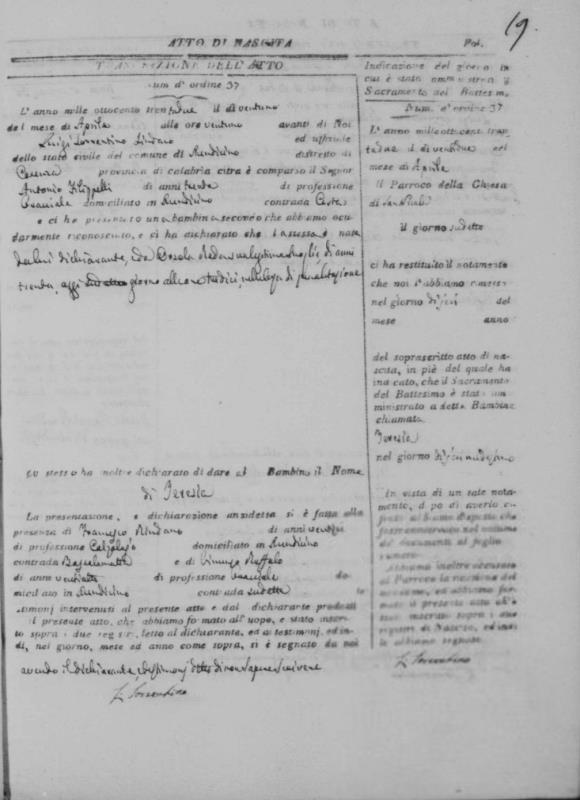 19
ATTO DI NASCITA Fol.
TRASCRIZIONE DELL' ATTO
Num d' ordine 37
L' anno mille ottocento trentadue il di ventuno
del mese di Aprile alle ore ventuno avanti di Noi
Luigi Sorrentino Sindaco ed uffiziale
dello stato civile del comune di Mendicino distretto di
Cosenza provincia di calabria citra è comparso il Signor
Antonio Filippelli di anni trenta di professione
bracciale domiciliato in Mendicino contrada Costa
e ci ha presentato una bambina secondo che abbiamo ocu-
larmente riconosciuto, e ci ha dichiarato che la stessa è nata
da lui dichiarante, e da Rosola sua legittima moglie, di anni
trenta, oggi giorno alle ore tredici, nella casa di
Lo stesso ha inoltre dichiarato di dare al Bambino il Nome
di Teresa
La presentazione, e dichiarazione anzidetta si è fatta alla
presenza di Francesco di anni
di professione Calzolajo domiciliato in Mendicino
contrada e di Vincenzo Ruffalo
di anni ventisette di professione bracciale do-
miciliato in Mendicino contrada sudetta e
testimonj intervenuti al presente atto e dal dichiarante prodotti
il presente atto, che abbiamo formato all'uopo, è stato inser-
to sopra i due registri, letto al dichiarante, ed ai testimonj, ed in-
di, nel giorno, mese ed anno come sopra, si è segnato da noi
avendo il dichiarante, e testimonj detto di non sapere scrivere
L. Sorrentino
Indicazione del giorno in
cui è stato amministrato il
Sacramento del Battesimo
Num. d' ordine 37
L' anno mille ottocento tren-
tadue il di ventidue del
mese di Aprile
il Parroco della Chiesa
di
il giorno sudetto
ci ha restituito il notamento
che noi l'abbiamo rimesso
nel giorno del
mese anno
del soprascritto atto di na-
scita, in piè del quale ha
indicato, che il Sacramento
del Battesimo è stato am-
ministrato a detta Bambina
chiamata
Teresa
nel giorno
In vista di un tale nota-
mento, dopo di averlo ci-
frato abbiamo disposto che
fosse conservato nel volume
dei documenti al foglio
numero
Abbiamo inoltre accusato
al Parroco la ricezione del
medesimo, ed abbiamo for-
mato il presente atto ch'è
stato inscritto sopra i due
registri di Nascite, ed indi
lo abbiamo segnato
L. Sorrentino